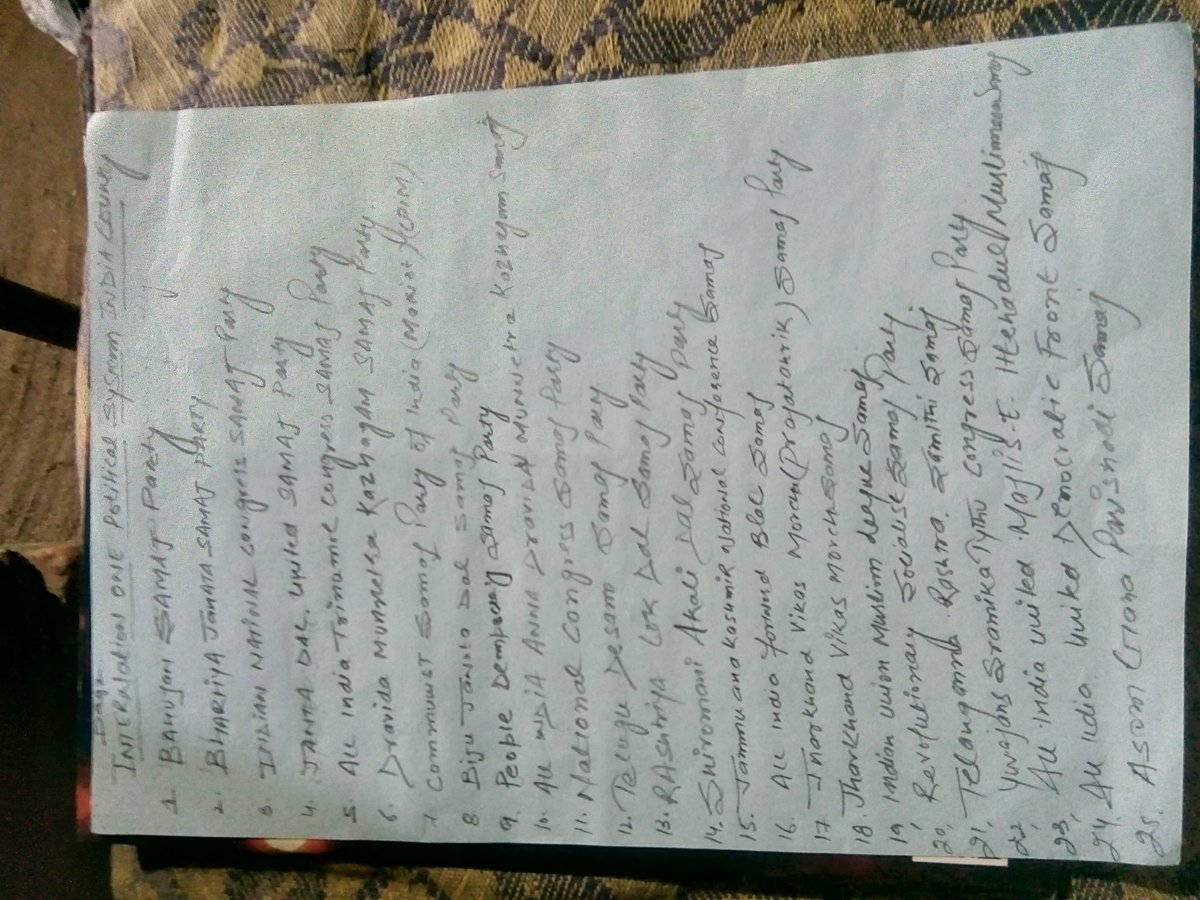 Page
INTERALATION ONE Political System INDIA COUNTRY
1. BAHUJAN SAMAJ Party
2. BhARIYA JANATA SAMAJ PARTY
3. INDIAN NATIONAL CONGRESS SAMAJ Party
4. JANTA DAL. United SAMAJ Party
5. All India Trinumc Congress SAMAJ Party
6. Dravida Munnetra Kazhagam SAMAJ Party
7. Communist Samaj Party of India (Marxist)(CPIM)
8. Biju Janata Dal Samaj Party
9. People Democracy Samaj Party
10. All INDIA ANNA DraviDAN MUNNETRA Kazhagam Samaj
11. National Congress Samaj Party
12. Telugu Desam Samaj Party
13. RAshtriya Lok Dal Samaj Party
14. Shiromani Akali Dal Samaj Party
15. Jammu and Kashmir National conference Samaj
16. All India Forward Bloc Samaj
17. Jharkhand Vikas Morcha (Prajatantrik) Samaj Party
18. Jharkhand Vikas Morcha Samaj
19. Indian union Muslim league Samaj
20. Revolutionary Socialist Samaj Party.
21. Telangana Rashtra. Samithi Samaj
22. Yuvajana Sramika Rythu Congress Samaj Party
23. All India united Majlis-E-Itehadul Muslimeen Samaj
24. All India. United Democratic Front Samaj
25. Asom Gana Parishad Samaj